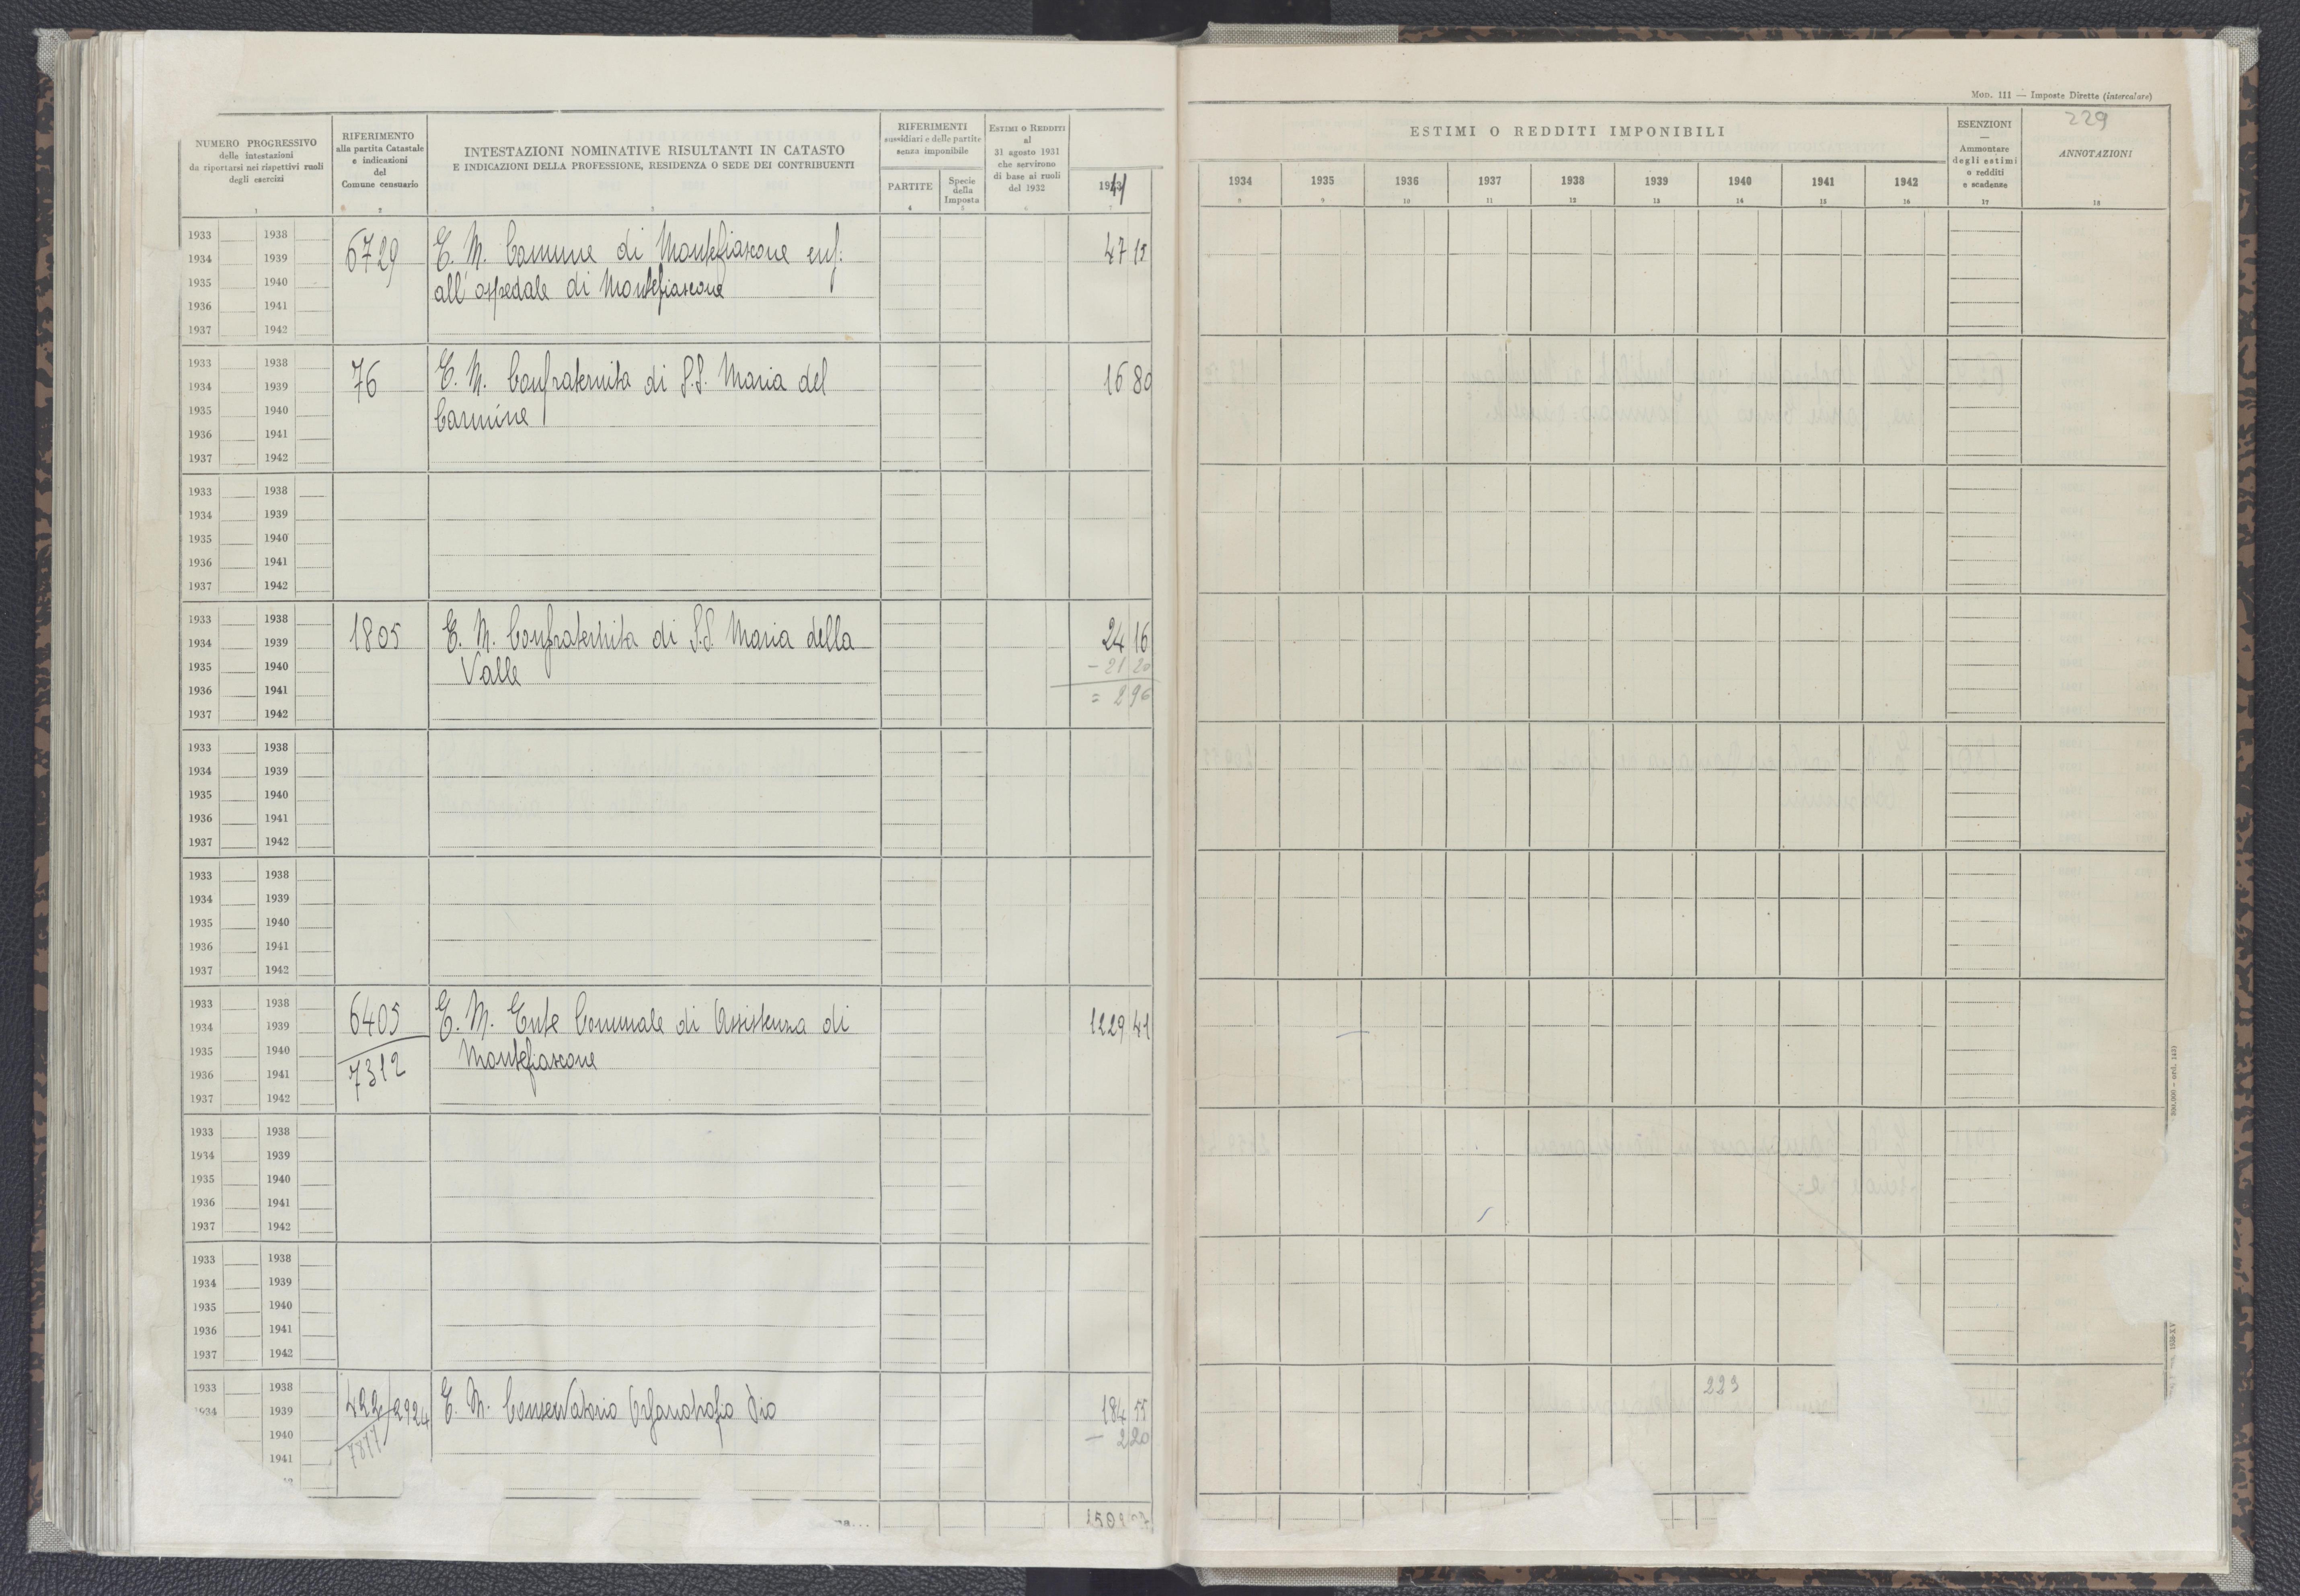 NUMERO PROGRESSIVO
delle intestazioni
da riportarsi nei rispettivi ruoli
degli esercizi
1
RIFERIMENTO
alla partita Catastale
e indicazioni
del
Comune censuario
2
INTESTAZIONI NOMINATIVE RISULTANTI IN CATASTO
E INDICAZIONI DELLA PROFESSIONE, RESIDENZA O SEDE DEI CONTRIBUENTI
3
RIFERIMENTI
sussidiari e delle partite
senza imponibile
PARTITE
4
Specie
della
Imposta
5
ESTIMI O REDDITI
al
31 agosto 1931
che servirono
di base ai ruoli
del 1932
6
7
1933 1938
1934 1939
1935 1940
1936 1941
1937 1942
6729
E. M. Comune di Montefiascone enf:
all'ospedale di Montefiascone
47 12
1933 1938
1934 1939
1935 1940
1936 1941
1937 1942
76
E. M. Confraternita di S.S. Maria del
Carmine
16 80
1933 1938
1934 1939
1935 1940
1936 1941
1937 1942
1933 1938
1934 1939
1935 1940
1936 1941
1937 1942
1805
E. M. Confraternita di S.S. Maria della
Valle
24 16
- 21 20
= 2 96
1933 1938
1934 1939
1935 1940
1936 1941
1937 1942
1933 1938
1934 1939
1935 1940
1936 1941
1937 1942
1933 1938
1934 1939
1935 1940
1936 1941
1937 1942
6405
7312
E. M. Ente Comunale di Assistenza di
Montefiascone
1229 41
1933 1938
1934 1939
1935 1940
1936 1941
1937 1942
1933 1938
1934 1939
1935 1940
1936 1941
1937 1942
1933 1938
1934 1939
1940
1941
422/2924
E. M. Conservatorio Orfanotrofio Pio
184 55
- 2 20
Mod. 111 — Imposte Dirette (intercalare)
ESTIMI O REDDITI IMPONIBILI
1934 1935 1936 1937 1938 1939 1940 1941 1942
8 9 10 11 12 13 14 15 16
ESENZIONI
—
Ammontare
degli estimi
o redditi
e scadenze
17
229
ANNOTAZIONI
18
223